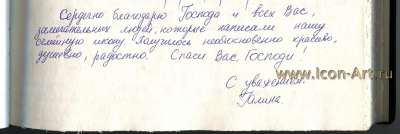 Сердечно благодарю Господа и всех Вас,
замечательных людей, которые написали нашу
семейную икону. Получилось необыкновенно красиво,
душевно, радостно. Спаси Вас, Господи!
С уважением
Галина.
www.Icon-Art.ru